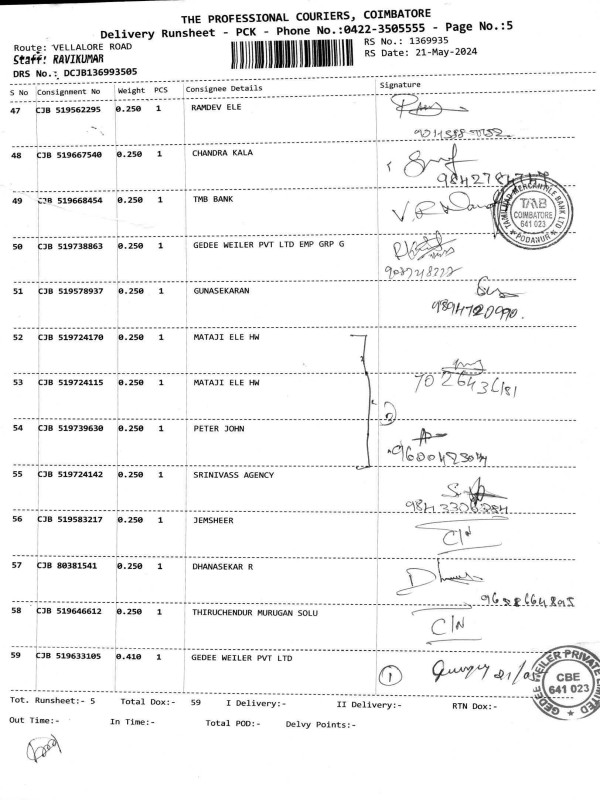 THE PROFESSIONAL COURIERS, COIMBATORE
Delivery Runsheet - PCK - Phone No.:0422-3505555 - Page No.:5
Route: VELLALORE ROAD RS No.: 1369935
Staff: RAVIKUMAR RS Date: 21-May-2024
DRS No.: DCJB136993505
S No Consignment No Weight PCS Consignee Details Signature
47 CJB 519562295 0.250 1 RAMDEV ELE
48 CJB 519667540 0.250 1 CHANDRA KALA
49 CJB 519668454 0.250 1 TMB BANK
TAMILNAD MERCANTILE BANK LTD
TMB
COIMBATORE
641 023
PODANUR
50 CJB 519738863 0.250 1 GEDEE WEILER PVT LTD EMP GRP G
51 CJB 519578937 0.250 1 GUNASEKARAN
9894720990.
52 CJB 519724170 0.250 1 MATAJI ELE HW
53 CJB 519724115 0.250 1 MATAJI ELE HW
54 CJB 519739630 0.250 1 PETER JOHN
55 CJB 519724142 0.250 1 SRINIVASS AGENCY
56 CJB 519583217 0.250 1 JEMSHEER
C/N
57 CJB 80381541 0.250 1 DHANASEKAR R
58 CJB 519646612 0.250 1 THIRUCHENDUR MURUGAN SOLU
C/N
59 CJB 519633105 0.410 1 GEDEE WEILER PVT LTD
1
GEDEE WEILER PRIVATE LIMITED
CBE
641 023
Tot. Runsheet:- 5 Total Dox:- 59 I Delivery:- II Delivery:- RTN Dox:-
Out Time:- In Time:- Total POD:- Delvy Points:-